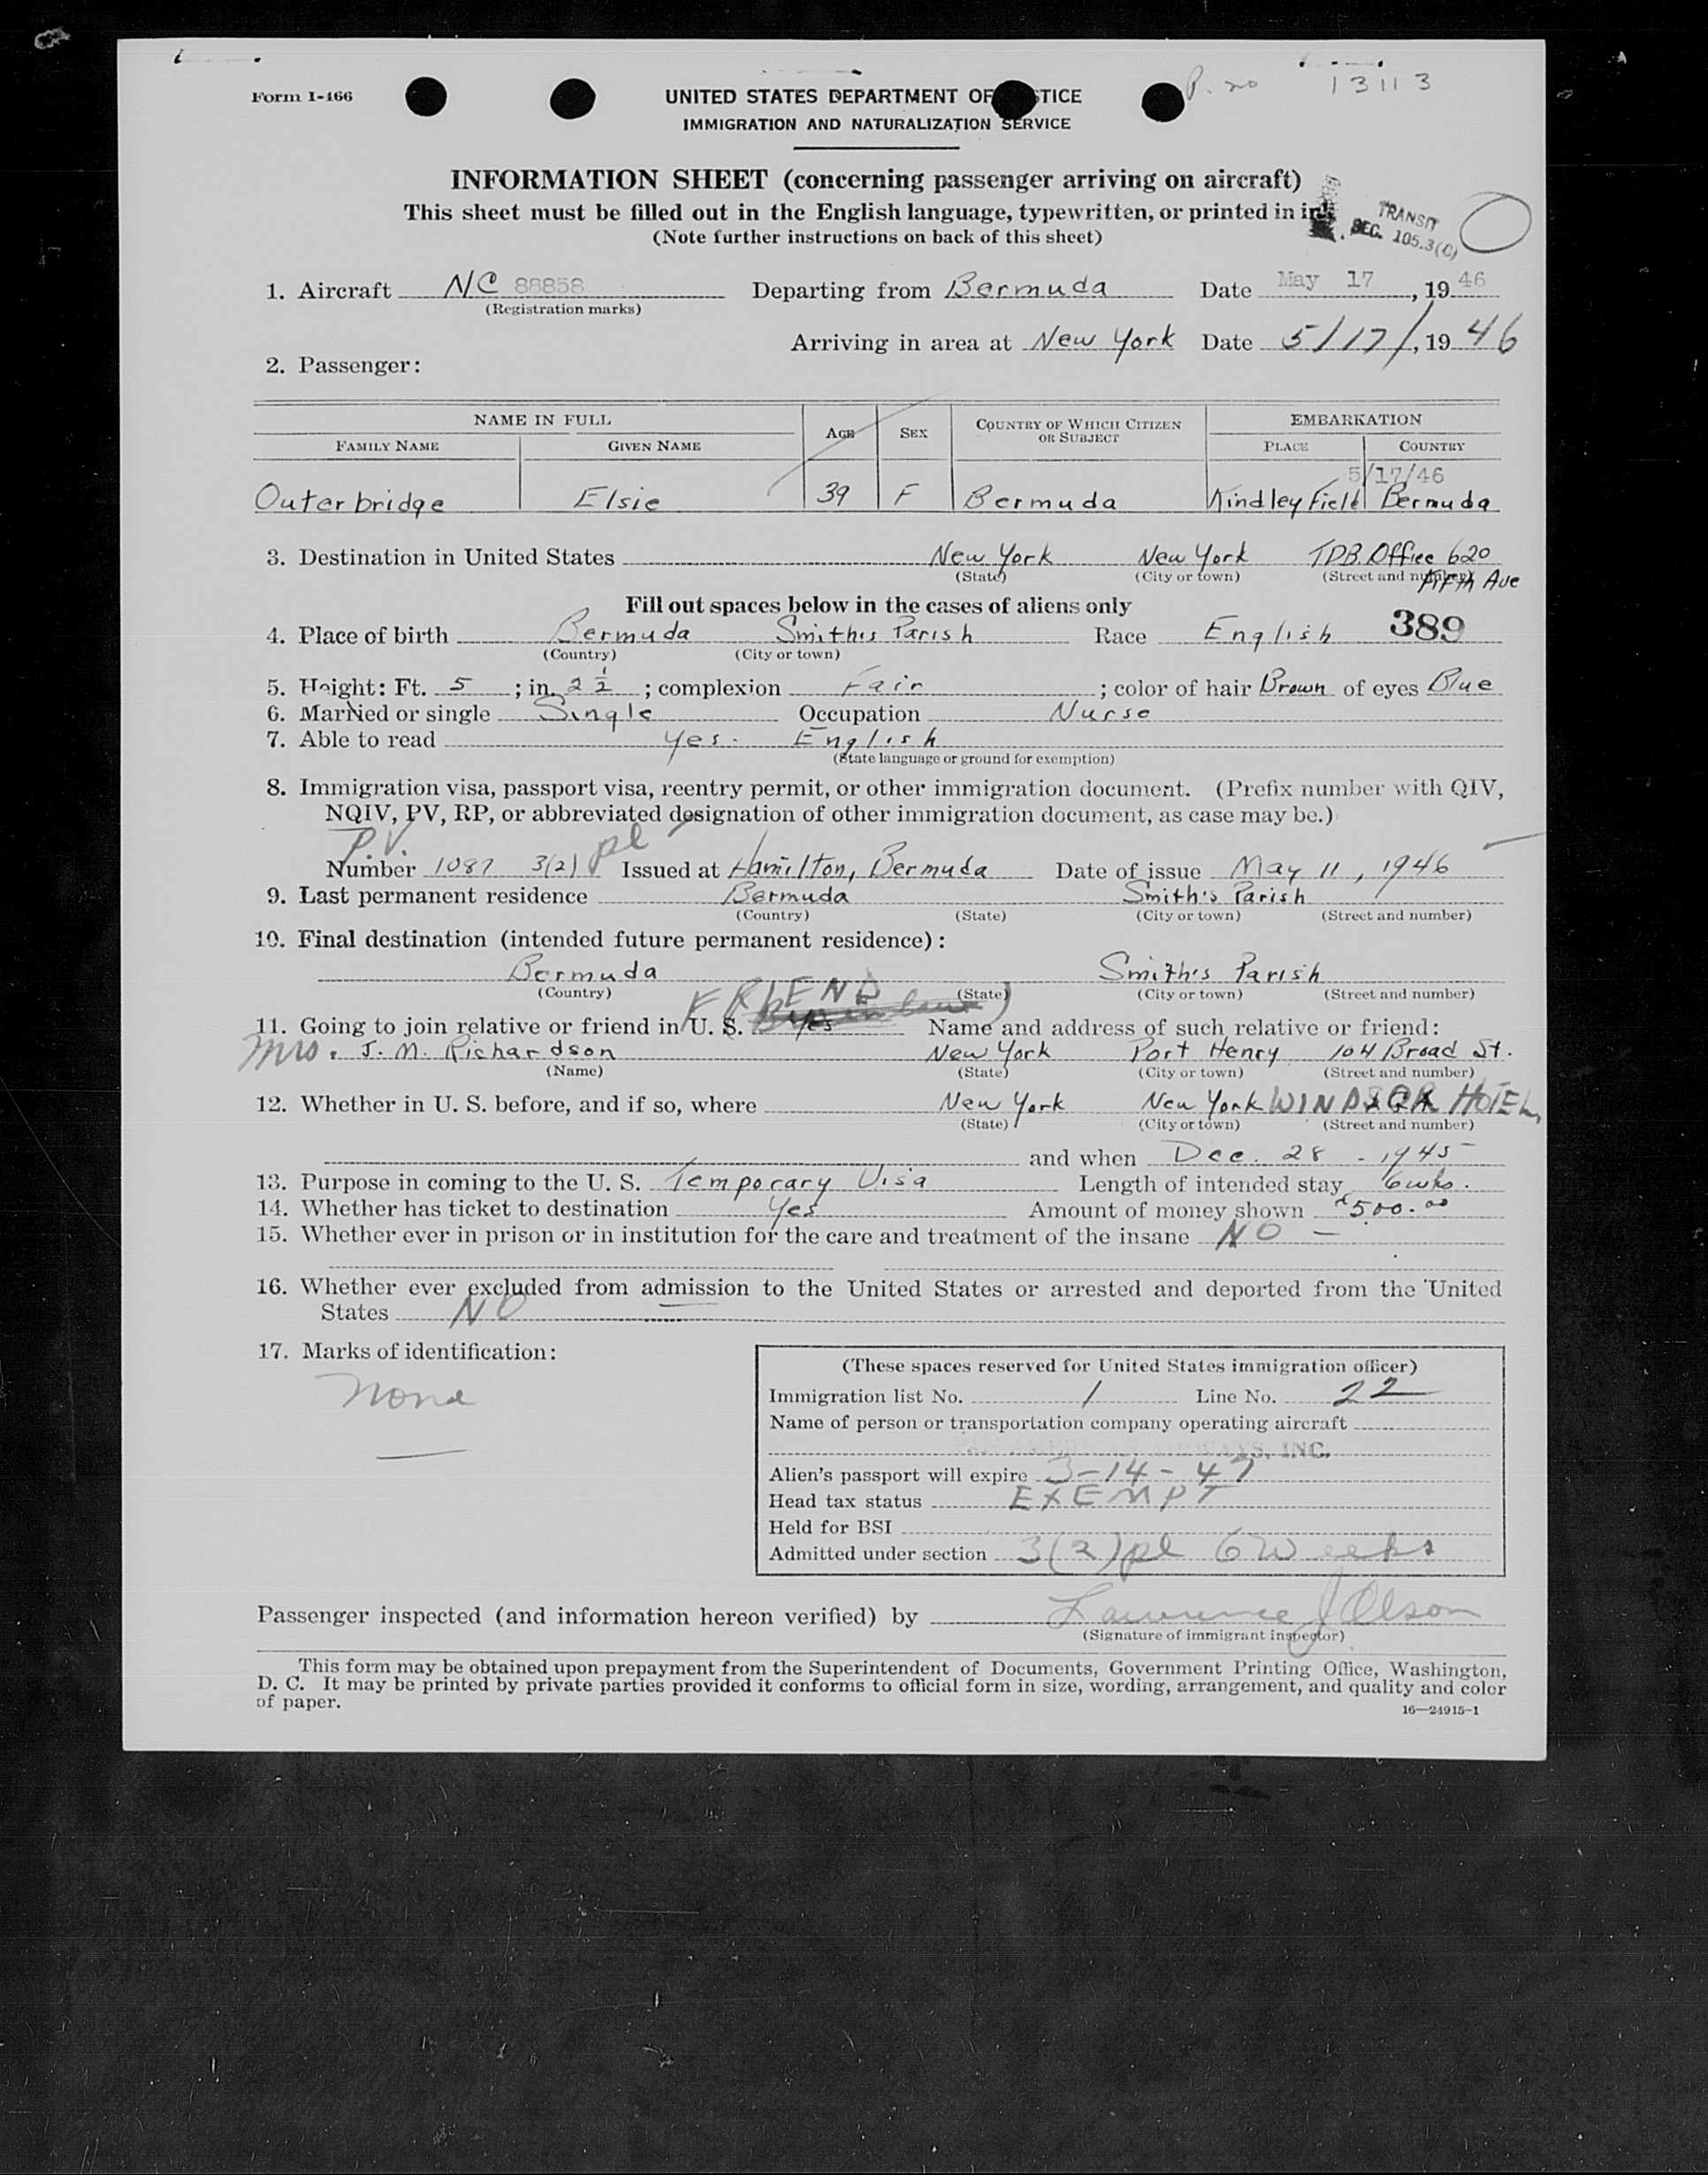 Form I-466
UNITED STATES DEPARTMENT OF JUSTICE
P. no 13113
IMMIGRATION AND NATURALIZATION SERVICE
INFORMATION SHEET (concerning passenger arriving on aircraft)
This sheet must be filled out in the English language, typewritten, or printed in ink
(Note further instructions on back of this sheet)
TRANSIT
SEC. 105.3(C)
1. Aircraft NC 88858 Departing from Bermuda Date May 17, 1946
(Registration marks)
Arriving in area at New York Date 5/17/, 1946
2. Passenger:
NAME IN FULL AGE SEX COUNTRY OF WHICH CITIZEN OR SUBJECT EMBARKATION
FAMILY NAME GIVEN NAME PLACE COUNTRY
5/17/46
Outerbridge Elsie 39 F Bermuda Kindley Field Bermuda
3. Destination in United States New York New York TDB. Office 620
(State) (City or town) (Street and number) Fifth Ave
Fill out spaces below in the cases of aliens only
4. Place of birth Bermuda Smith's Parish Race English 389
(Country) (City or town)
5. Height: Ft. 5; in. 2 1/2; complexion Fair; color of hair Brown of eyes Blue
6. Married or single Single Occupation Nurse
7. Able to read Yes. English
(State language or ground for exemption)
8. Immigration visa, passport visa, reentry permit, or other immigration document. (Prefix number with QIV,
NQIV, PV, RP, or abbreviated designation of other immigration document, as case may be.)
P.V.
Number 1087 3(2) pl Issued at Hamilton, Bermuda Date of issue May 11, 1946
9. Last permanent residence Bermuda Smith's Parish
(Country) (State) (City or town) (Street and number)
10. Final destination (intended future permanent residence):
Bermuda Smith's Parish
(Country) (State) (City or town) (Street and number)
11. Going to join relative or friend in U. S. FRIEND yes Name and address of such relative or friend:
Mrs. J. M. Richardson New York Port Henry 104 Broad St.
(Name) (State) (City or town) (Street and number)
12. Whether in U. S. before, and if so, where New York New York WINDSOR HOTEL
(State) (City or town) (Street and number)
and when Dec. 28 - 1945
13. Purpose in coming to the U. S. Temporary Visa Length of intended stay 6 wks.
14. Whether has ticket to destination Yes Amount of money shown $500.00
15. Whether ever in prison or in institution for the care and treatment of the insane NO —
16. Whether ever excluded from admission to the United States or arrested and deported from the United
States NO —
17. Marks of identification:
None
(These spaces reserved for United States immigration officer)
Immigration list No. 1 Line No. 22
Name of person or transportation company operating aircraft
AIRWAYS, INC.
Alien's passport will expire 3-14-47
Head tax status EXEMPT
Held for BSI
Admitted under section 3(2)pl 6 Weeks
Passenger inspected (and information hereon verified) by Lawrence J Olson
(Signature of immigrant inspector)
This form may be obtained upon prepayment from the Superintendent of Documents, Government Printing Office, Washington,
D. C. It may be printed by private parties provided it conforms to official form in size, wording, arrangement, and quality and color
of paper.
16—24915-1